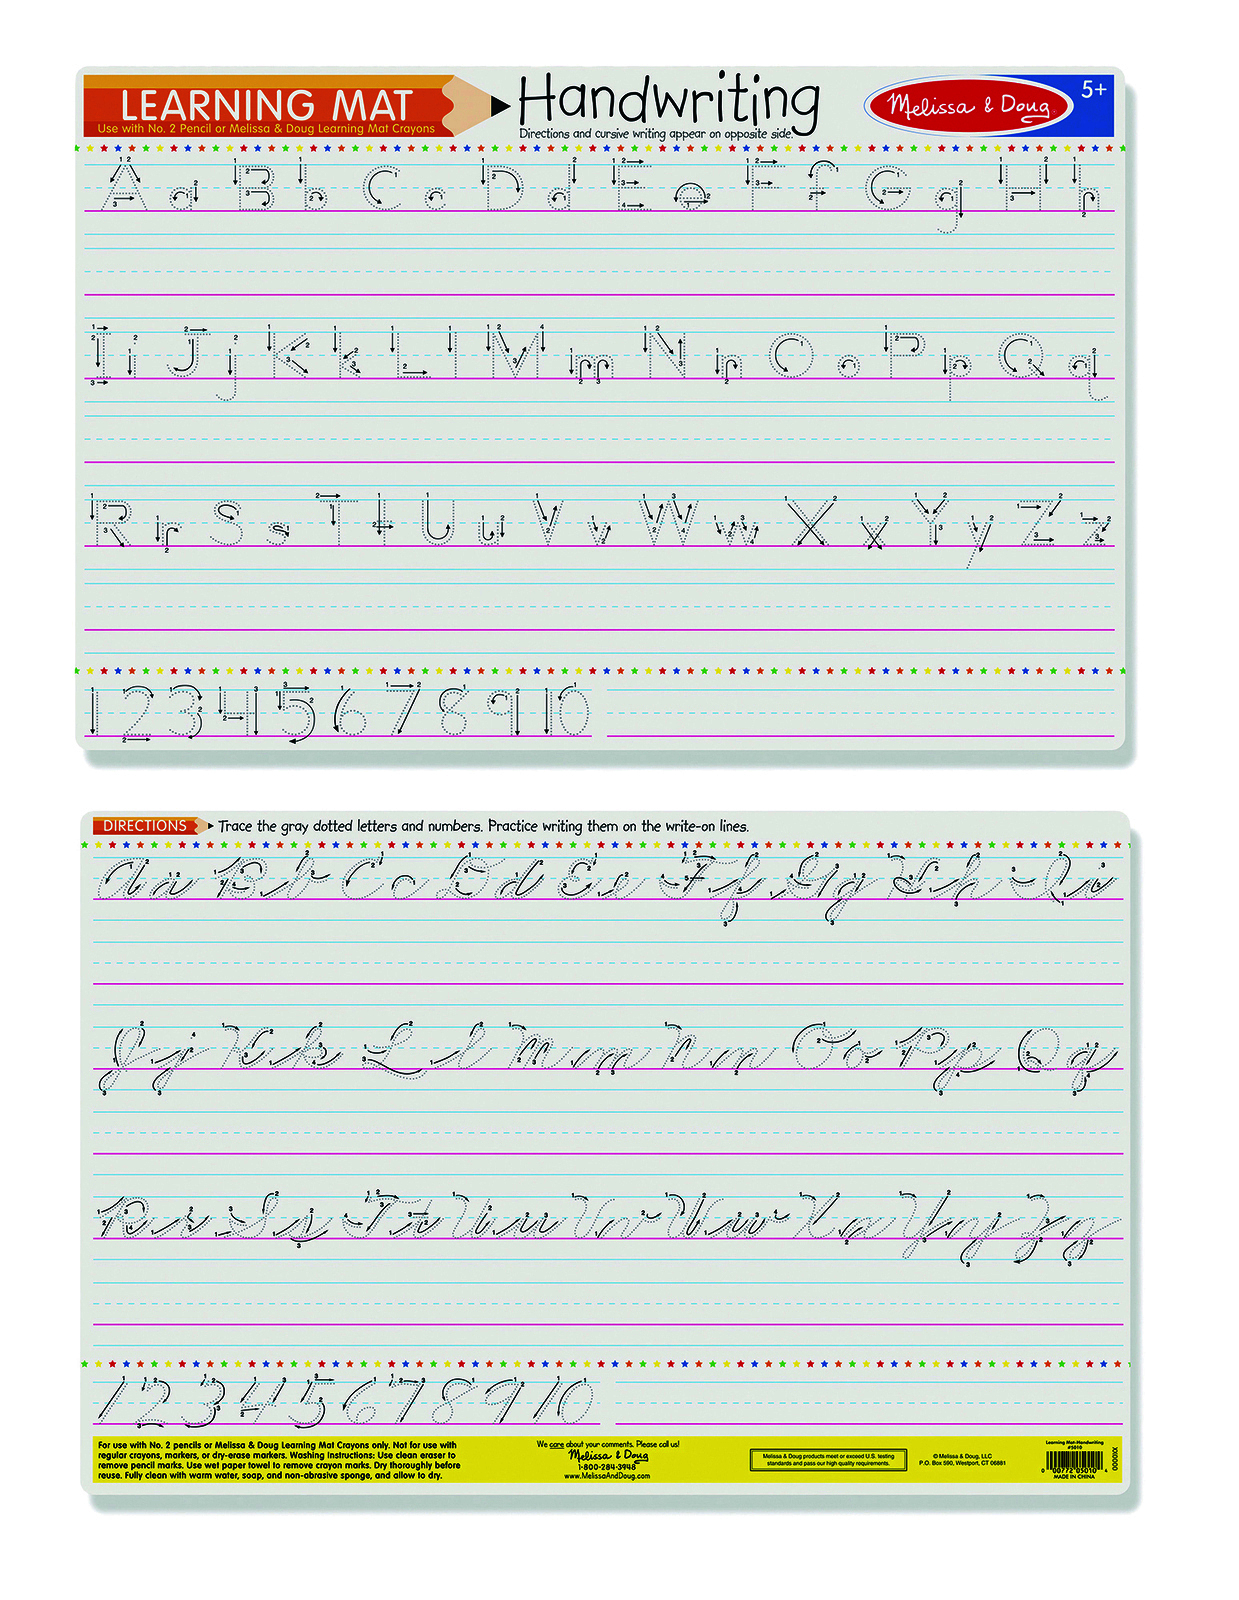 LEARNING MAT
Use with No. 2 Pencil or Melissa & Doug Learning Mat Crayons
Handwriting
Directions and cursive writing appear on opposite side.
Melissa & Doug
5+
A a B b C c D d E e F f G g H h
I i J j K k L l M m N n O o P p Q q
R r S s T t U u V v W w X x Y y Z z
1 2 3 4 5 6 7 8 9 10
DIRECTIONS
Trace the gray dotted letters and numbers. Practice writing them on the write-on lines.
A a B b C c D d E e F f G g H h I i
J j K k L l M m N n O o P p Q q
R r S s T t U u V v W w X x Y y Z z
1 2 3 4 5 6 7 8 9 10
For use with No. 2 pencils or Melissa & Doug Learning Mat Crayons only. Not for use with
regular crayons, markers, or dry-erase markers. Washing Instructions: Use clean eraser to
remove pencil marks. Use wet paper towel to remove crayon marks. Dry thoroughly before
reuse. Fully clean with warm water, soap, and non-abrasive sponge, and allow to dry.
We care about your comments. Please call us!
Melissa & Doug
1-800-284-3948
www.MelissaAndDoug.com
Melissa & Doug products meet or exceed U.S. testing
standards and pass our high quality requirements.
© Melissa & Doug, LLC
P.O. Box 590, Westport, CT 06881
Learning Mat-Handwriting
#5010
0 00772 05010
MADE IN CHINA